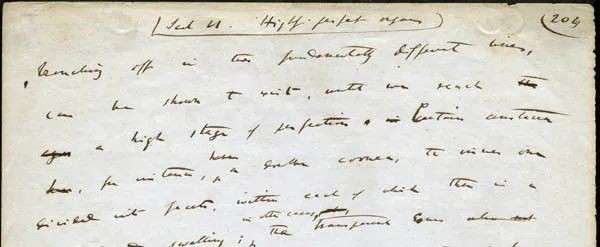 Sect VI. Highly perfect organs 204
branching off in two fundamentally different lines,
can be shown to exist, until we reach the
eyes a high stage of perfection. in Certain crustacea
have
, for instance, a double cornea, the inner one
divided into facets, within each of which there is a
in other cases
swelling; the transparent cones